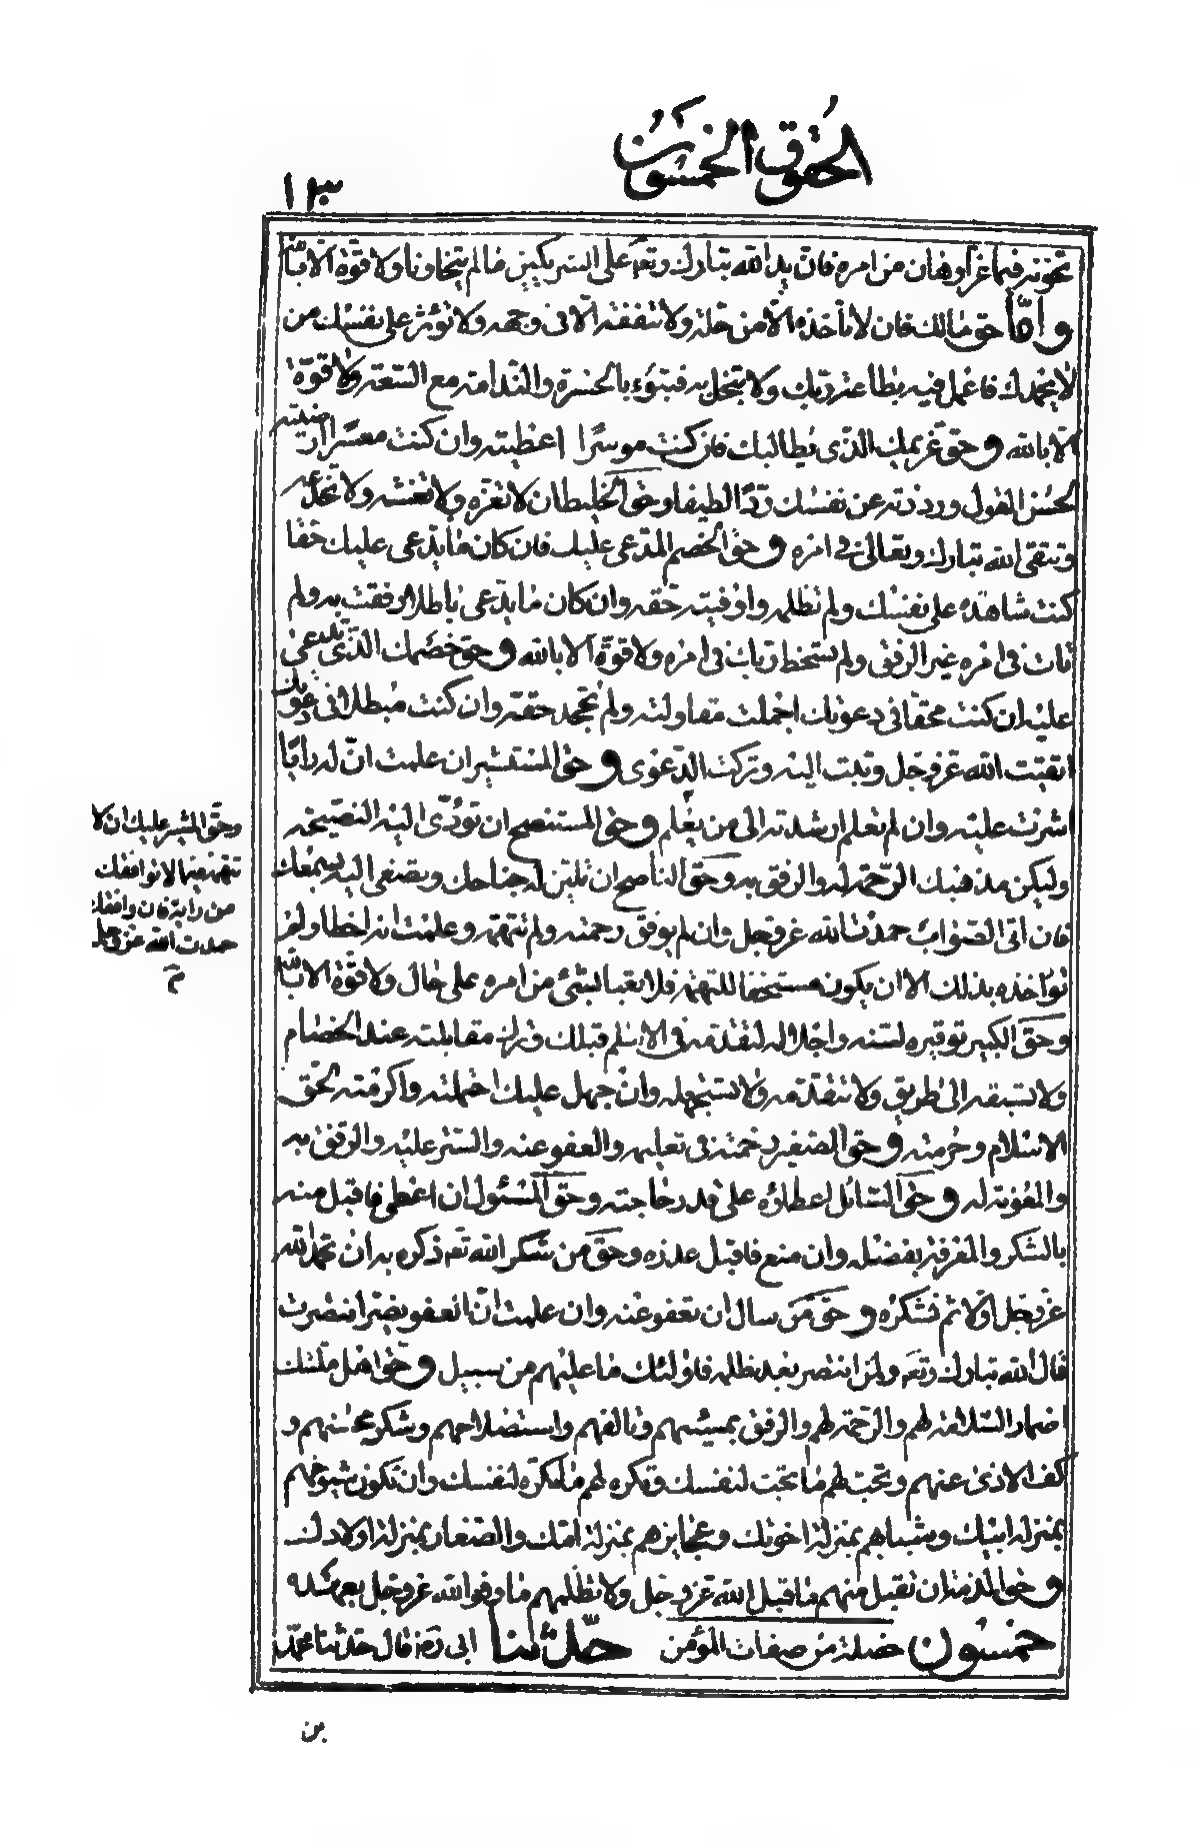 الحقوق الخمسون
١٣
تخونه فيما عز او هان من امره فان يد الله تبارك وتع على الشريكين ما لم يتخاونا ولا قوة الا بالله
واما حق مالك فان لا تأخذه الا من حله ولا تنفقه الا فى وجهه ولا تؤثر على نفسك من
لا يحمدك فاعمل فيه بطاعة ربك ولا تبخل به فتبوء بالحسرة والندامة مع السعة ولا قوة
الا بالله وحق غريمك الذى يطالبك فان كنت موسرا اعطيته وان كنت معسرا ارضيته
بحسن القول ورددته عن نفسك ردا لطيفا وحق الخليط ان لا تغره ولا تغشه ولا تخدعه
وتتقى الله تبارك وتعالى فى امره وحق الخصم المدعى عليك فان كان ما يدعى عليك حقا
كنت شاهده على نفسك ولم تظلمه واوفيته حقه وان كان ما يدعى باطلا رفقت به ولم
تات فى امره غير الرفق ولم تسخط ربك فى امره ولا قوة الا بالله وحق خصمك الذى تدعى
عليه ان كنت محقا فى دعوتك اجملت مقاولته ولم تجحد حقه وان كنت مبطلا فى دعويك
اتقيت الله عز وجل وتبت اليه وتركت الدعوى وحق المستشير ان علمت ان له رايا
اشرت عليه وان لم تعلم ارشدته الى من يعلم وحق المستنصح ان تؤدى اليه النصيحة
وليكن مذهبك الرحمة له والرفق به وحق الناصح ان تلين له جناحك وتصغى اليه بسمعك
فان اتى الصواب حمدت الله عز وجل وان لم يوفق رحمته ولم تتهمه وعلمت انه اخطا ولم
تؤاخذه بذلك الا ان يكون مستحقا للتهمة فلا تعبا بشئ من امره على حال ولا قوة الا بالله
وحق الكبير توقيره لسنه واجلاله لتقدمه فى الاسلم قبلك وترك مقابلته عند الخصام
ولا تسبقه الى طريق ولا تتقدمه ولا تستجهله وان جهل عليك احتملته واكرمته لحق
الاسلام وحرمته وحق الصغير رحمته فى تعليمه والعفو عنه والستر عليه والرفق به
والمعونة له وحق السائل اعطاؤه على قدر حاجته وحق المسئول ان اعطى فاقبل منه
بالشكر والمعرفة بفضله وان منع فاقبل عذره وحق من سرك لله تع ذكره به ان تحمد الله
عز وجل اولا ثم تشكره وحق من ساءك ان تعفو عنه وان علمت ان العفو يضر انتصرت
قال الله تبارك وتع ولمن انتصر بعد ظلمه فاولئك ما عليهم من سبيل وحق اهل ملتك
اضمار السلامة لهم والرحمة لهم والرفق بمسيئهم وتالفهم واستصلاحهم وشكر محسنهم و
كف الاذى عنهم وتحب لهم ما تحب لنفسك وتكره لهم ما تكره لنفسك وان تكون شيوخهم
بمنزلة ابيك وشبابهم بمنزلة اخوتك وعجايزهم بمنزلة امك والصغار بمنزلة اولادك
وحق الذمة ان تقبل منهم ما قبل الله عز وجل ولا تظلمهم ما وفوا لله عز وجل بعهده
خمسون خصلة من صفات المؤمن حدثنا ابى ره قال حدثنا محمد
وحق المشير عليك ان لا
تتهمه فيما لا يوافقك
من رايه فان وافقك
حمدت الله عز وجل
م
بن